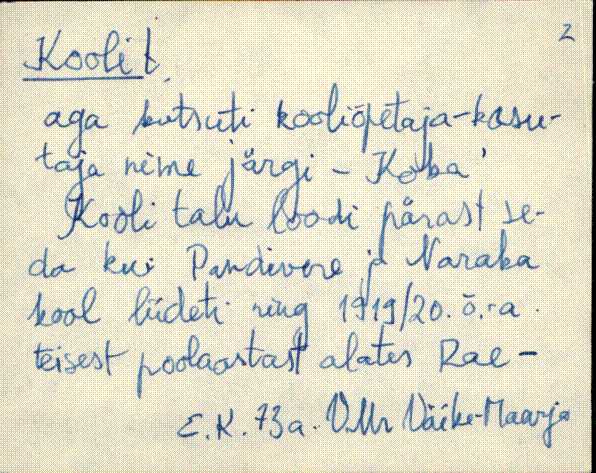 2
Kooli t.
aga kutsuti kooliõpetaja-kasu-
taja nime järgi - 'Koba'
Kooli talu loodi pärast se-
da kui Pandivere ja Naraka
kool liideti ning 1919/20. õ.-a.
teisest poolaastast alates Rae-
E.K. 73a. VMr Väike-Maarja